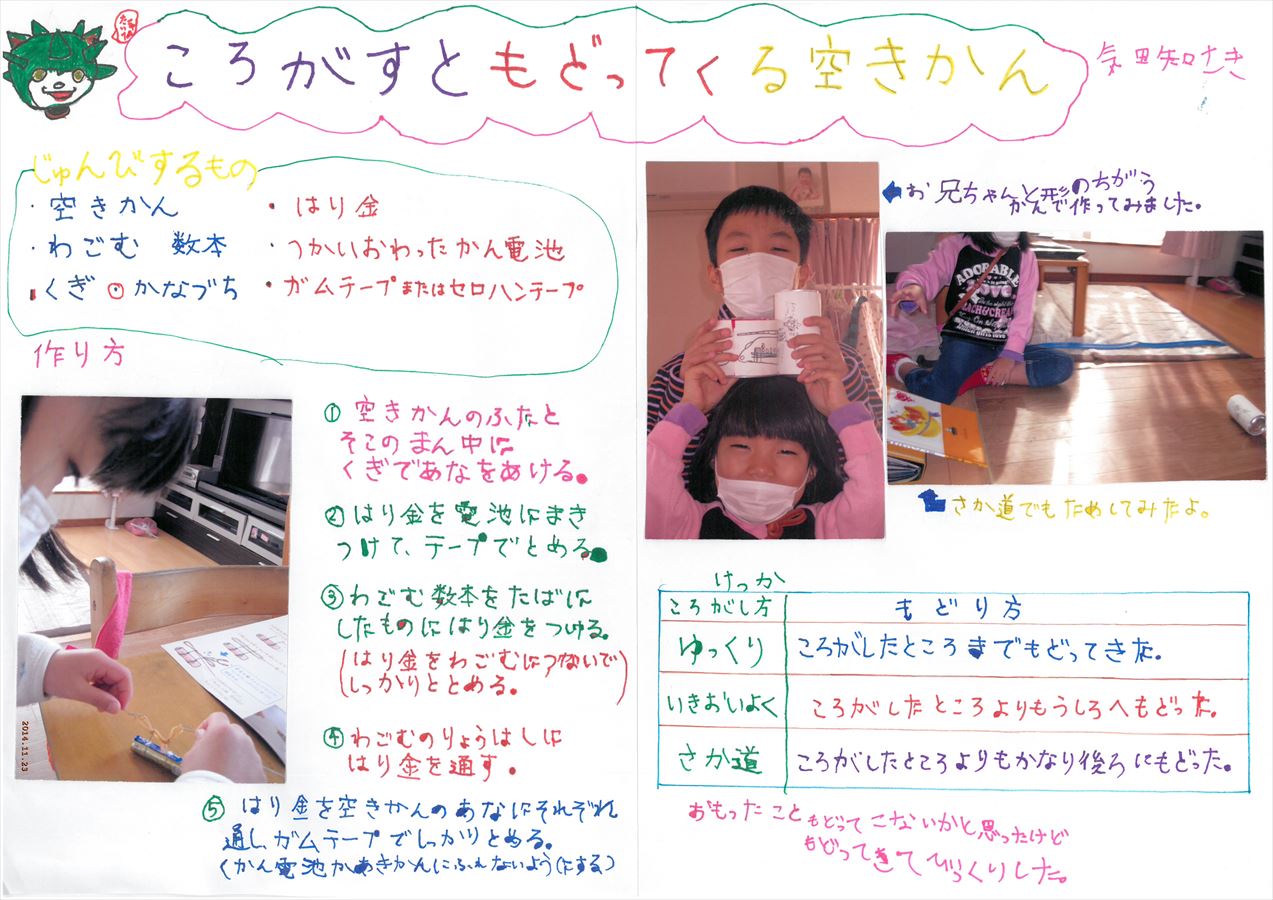 ころがすともどってくる空きかん
気田知さき
じゅんびするもの
・空きかん
・はり金
・わごむ 数本
・つかいおわったかん電池
・くぎ・かなづち
・ガムテープまたはセロハンテープ
作り方
① 空きかんのふたと
そこのまん中に
くぎであなをあける。
② はり金を電池にまき
つけて、テープでとめる。
③ わごむ数本をたばに
したものにはり金をつける。
(はり金をわごむにつないで
しっかりととめる。)
④ わごむのりょうはしに
はり金を通す。
⑤ はり金を空きかんのあなにそれぞれ
通し、ガムテープでしっかりとめる。
(かん電池があきかんにふれないようにする)
2014.11.23
お兄ちゃんと形のちがう
かんで作ってみました。
ADORABLE
さか道でもためしてみたよ。
けっか
ころがし方 もどり方
ゆっくり ころがしたところまでもどってきた。
いきおいよく ころがしたところよりもうしろへもどった。
さか道 ころがしたところよりもかなり後ろにもどった。
おもったこと もどってこないかと思ったけど
もどってきてびっくりした。